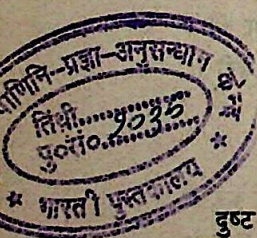 पाणिनि-प्रज्ञा-अनुसन्धान केन्द्र
तिथी..............
पु०सं०.१०३०.......
* भारती पुस्तकालय *
दुष्ट